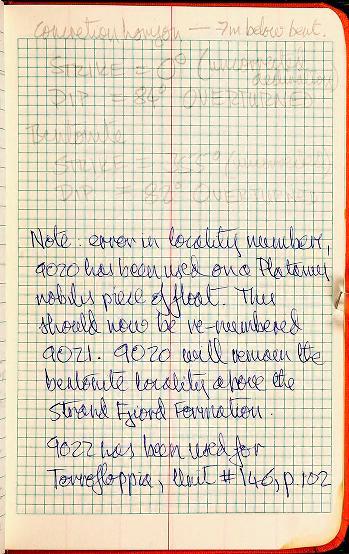 concretion horizon — 7m below bent.
STRIKE = 0° (uncorrected
declination)
DIP = 84° OVERTURNED
Bentonite
STRIKE = 355° (uncorrected)
DIP = 82° OVERTURNED
Note: error in locality numbers,
9020 has been used on a Platanus
nobilis piece of float. This
should now be re-numbered
9021. 9020 will remain the
bentonite locality above the
Strand Fjord Formation.
9022 has been used for
Torrefloppia, Unit #146, p.102